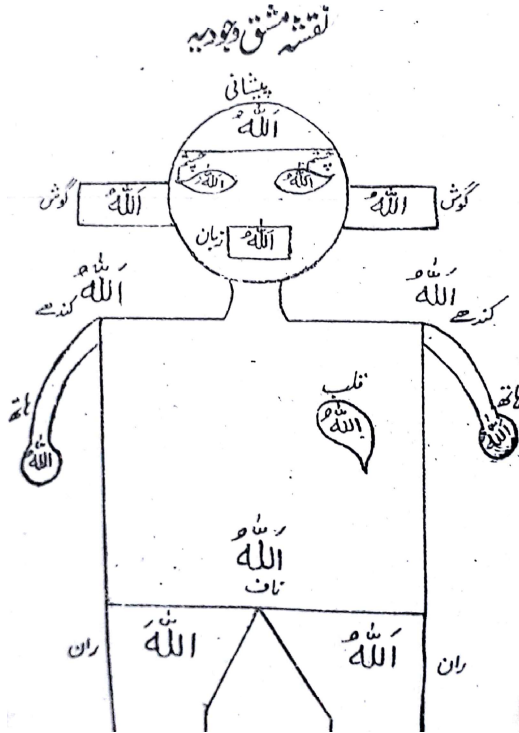 نقشہ مشق وجودیہ
پیشانی
اَللّٰهُ
چشم
چشم
اَللّٰهُ
اَللّٰهُ
گوش
اَللّٰهُ
اَللّٰهُ
گوش
زبان
اَللّٰهُ
اَللّٰهُ
کندھے
اَللّٰهُ
کندھے
ہاتھ
اللّٰهُ
ہاتھ
اللّٰهُ
قلب
اَللّٰهُ
اَللّٰهُ
ناف
ران
اَللّٰهُ
اَللّٰهُ
ران